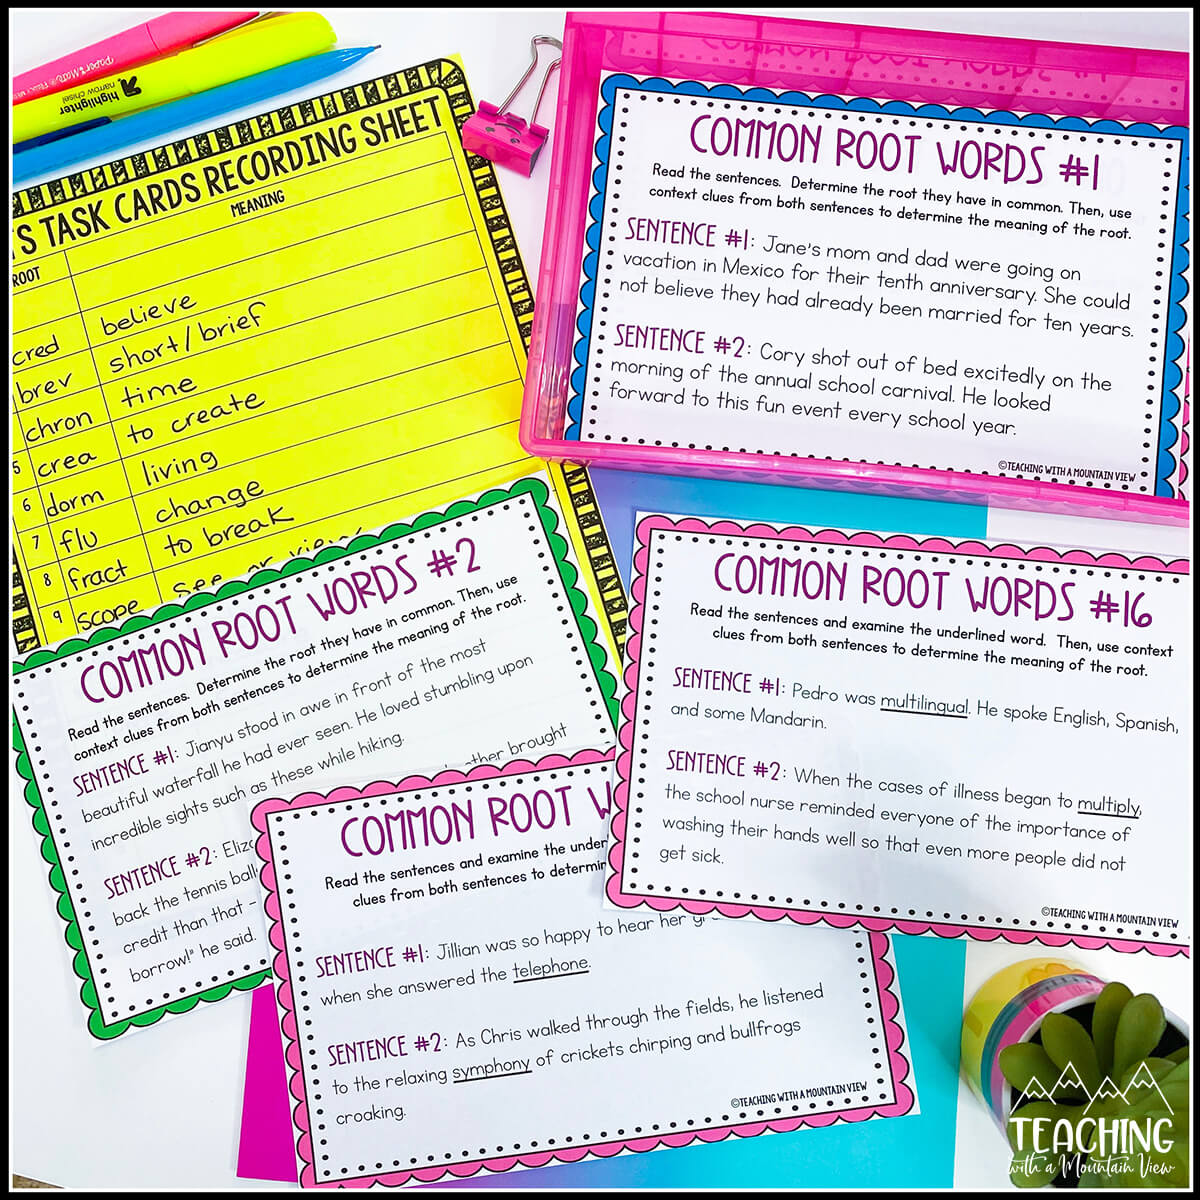 paper mate
highlighter
narrow chisel
TASK CARDS RECORDING SHEET
ROOT MEANING
cred believe
brev short/brief
chron time
5 crea to create
6 dorm living
7 flu change
8 fract to break
9 scope see or view
COMMON ROOT WORDS #1
Read the sentences. Determine the root they have in common. Then, use
context clues from both sentences to determine the meaning of the root.
SENTENCE #1: Jane's mom and dad were going on
vacation in Mexico for their tenth anniversary. She could
not believe they had already been married for ten years.
SENTENCE #2: Cory shot out of bed excitedly on the
morning of the annual school carnival. He looked
forward to this fun event every school year.
©TEACHING WITH A MOUNTAIN VIEW
COMMON ROOT WORDS #2
Read the sentences. Determine the root they have in common. Then, use
context clues from both sentences to determine the meaning of the root.
SENTENCE #1: Jianyu stood in awe in front of the most
beautiful waterfall he had ever seen. He loved stumbling upon
incredible sights such as these while hiking.
SENTENCE #2: brought
back the tennis
credit than that –
borrow!" he said.
COMMON ROOT WORDS #16
Read the sentences and examine the underlined word. Then, use context
clues from both sentences to determine the meaning of the root.
SENTENCE #1: Pedro was multilingual. He spoke English, Spanish,
and some Mandarin.
SENTENCE #2: When the cases of illness began to multiply,
the school nurse reminded everyone of the importance of
washing their hands well so that even more people did not
get sick.
©TEACHING WITH A MOUNTAIN VIEW
COMMON ROOT
Read the sentences and examine the
clues from both sentences to
SENTENCE #1: Jillian was so happy to hear her
when she answered the telephone.
SENTENCE #2: As Chris walked through the fields, he listened
to the relaxing symphony of crickets chirping and bullfrogs
croaking.
©TEACHING WITH A MOUNTAIN VIEW
TEACHING
with a Mountain View